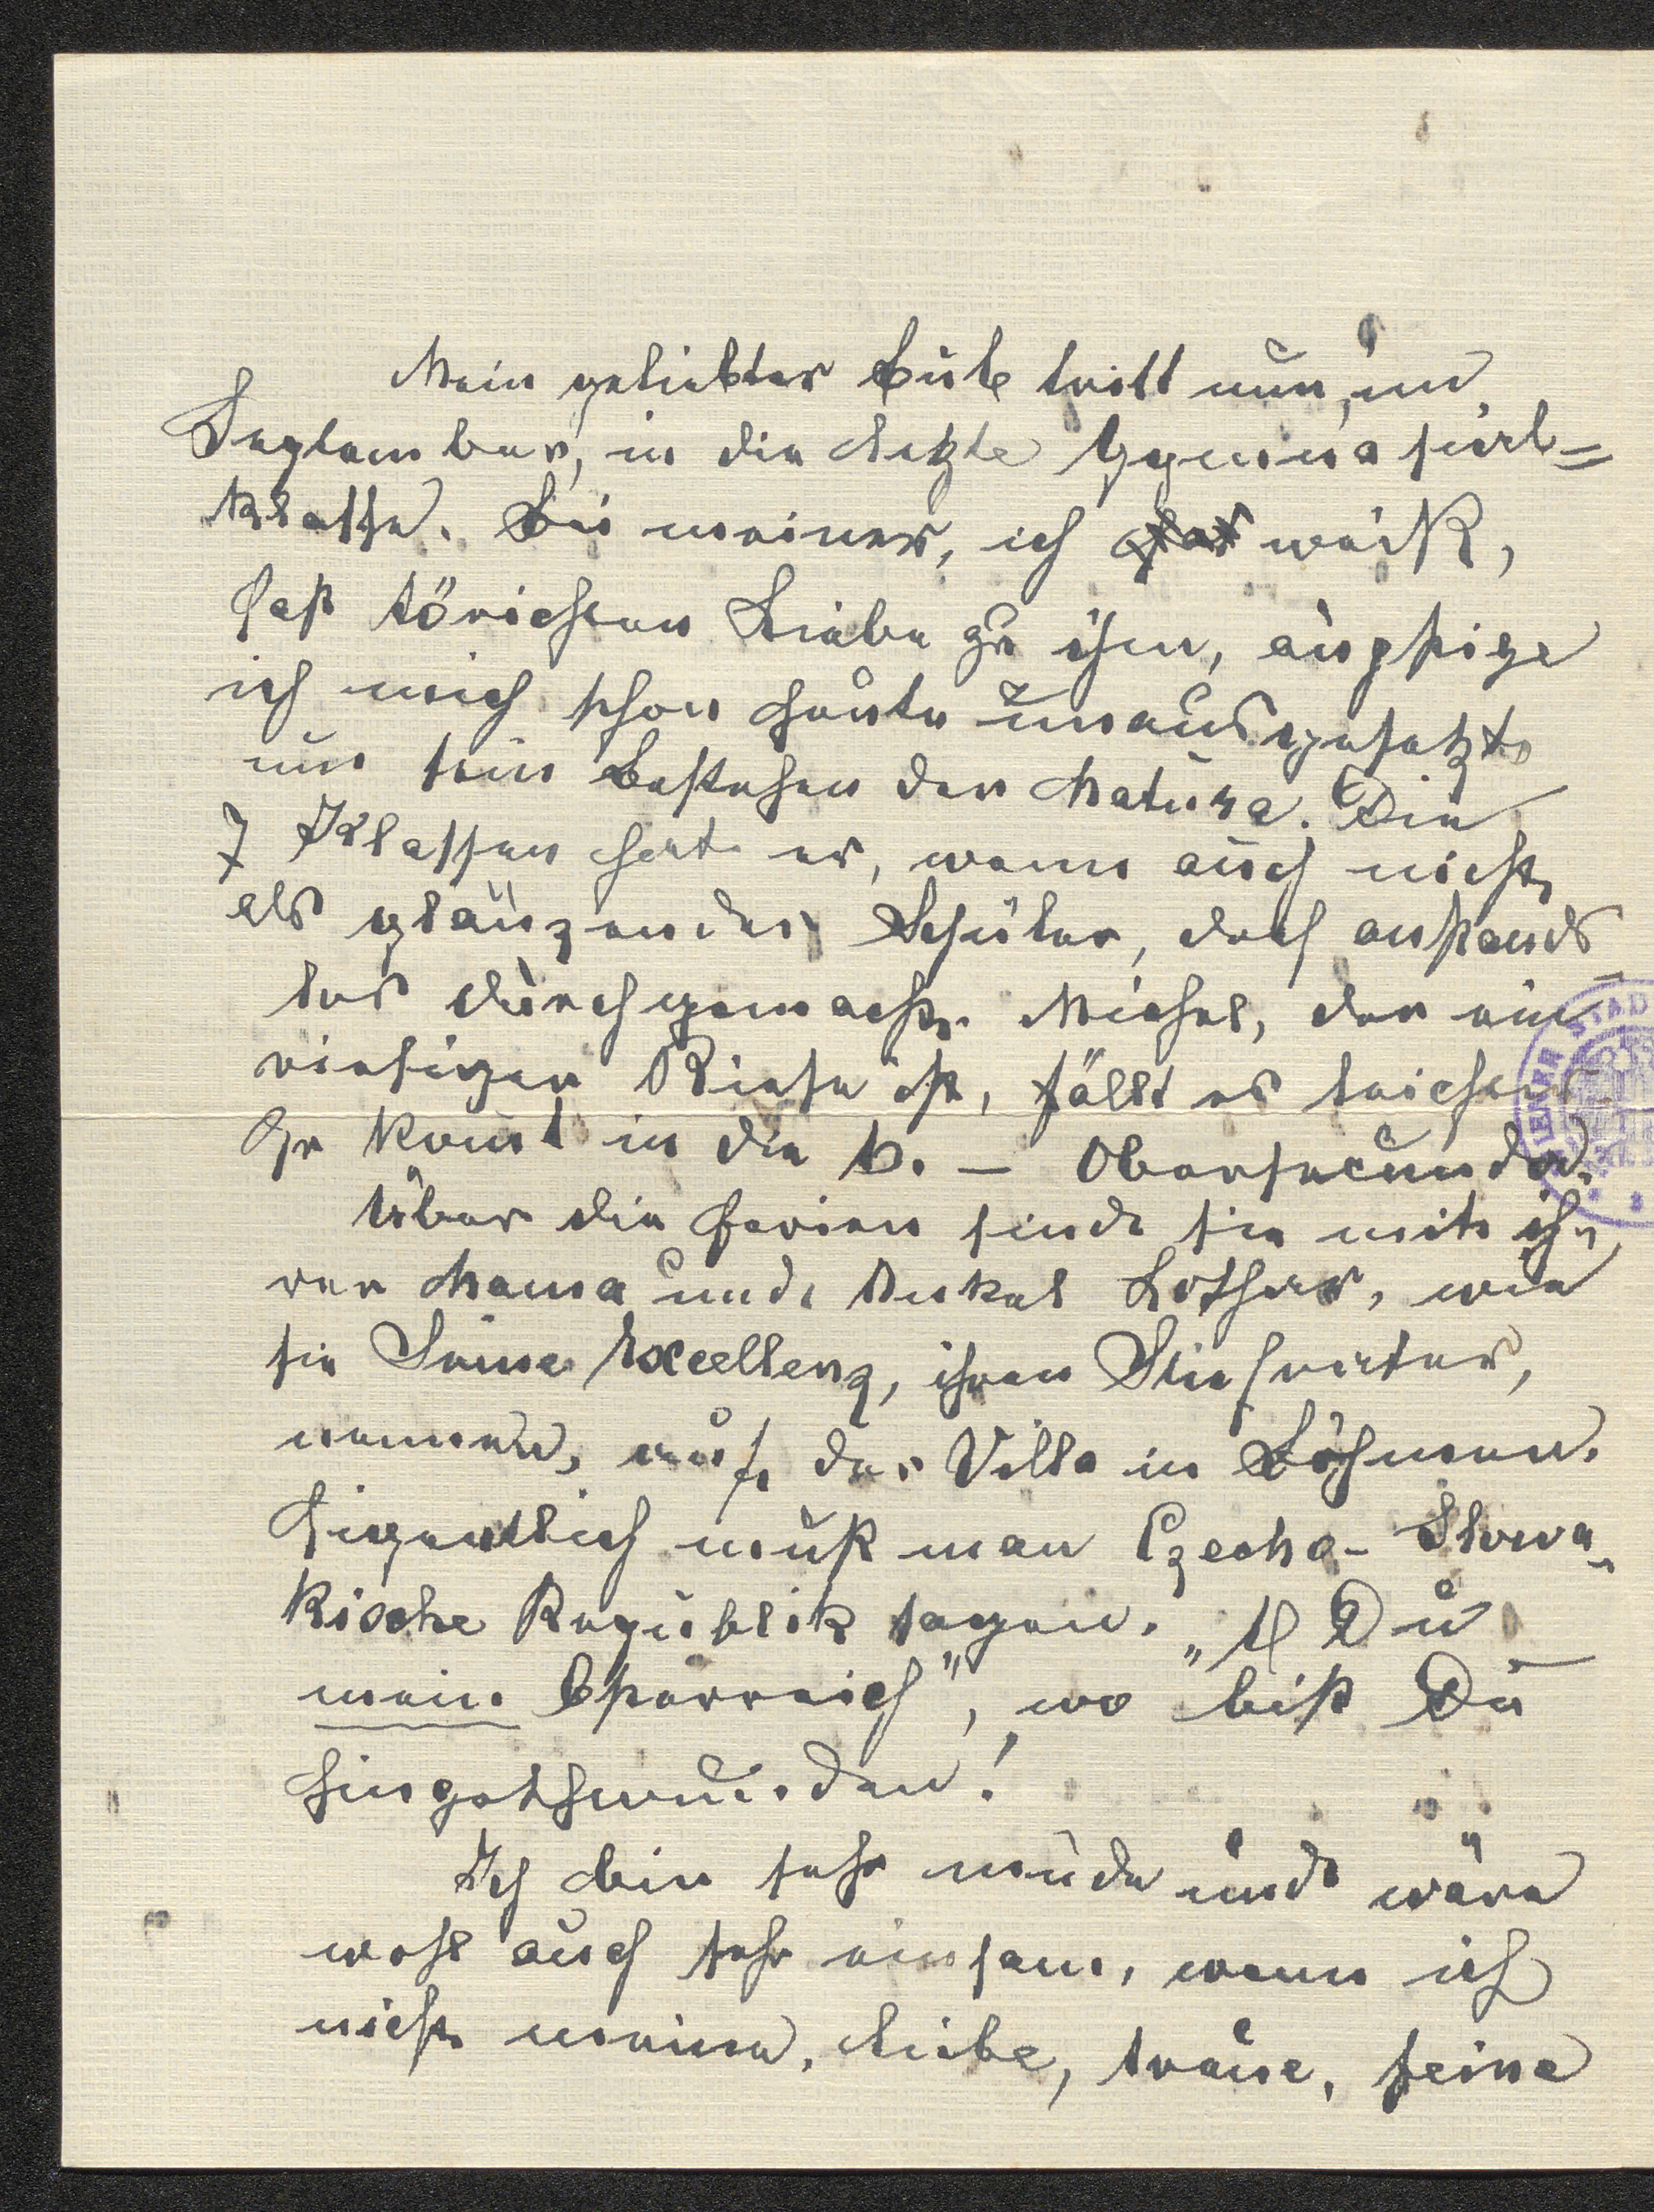 Mein geliebter Bub tritt nun, im
September, in die letzte Gymnasial=
klasse. Bei meiner, ich weiß,
fast törichten Liebe zu ihm, ängstige
ich mich schon heute unausgesetzt
um sein Bestehen der Matura. Die
7 Klassen hat er, wenn auch nicht
als glänzender Schüler, doch anstands-
los durchgemacht. Michel, der ein
richtiger Riese ist, fällt es leichter.
Er kommt in die 6. – Obersecunda.
Über die Ferien sind sie mit ih-
rer Mama und Onkel Lothar, wie
sie Seine Excellenz, ihren Stiefvater,
nennen, auf der Villa in Böhmen.
Eigentlich muß man Czecho-Slowa-
kische Republik sagen. „O Du
mein Österreich", wo bist Du
hingeschwunden!
Ich bin sehr müde und wäre
wohl auch sehr einsam, wenn ich
nicht meine, liebe, treue, feine
WIENER STAD